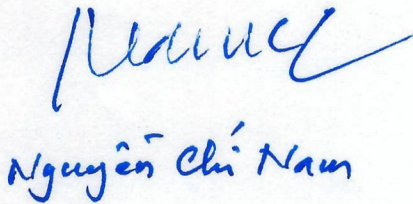 Nguyễn Chí Nam